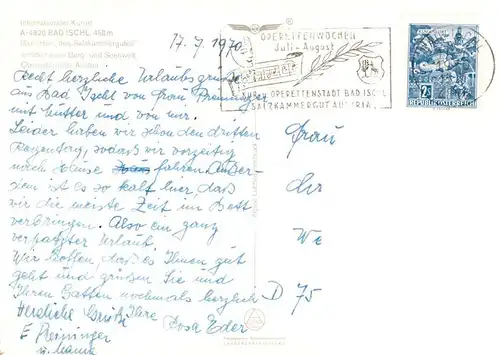 Internationaler Kurort
A-4820 BAD ISCHL, 468m
17.7.1970
OPERETTENWOCHEN
Juli - August
OPERETTENSTADT BAD ISCHL
SALZKAMMERGUT AUSTRIA
2S
REPUBLIK ÖSTERREICH
Recht herzliche Urlaubsgrüße
aus Bad Ischl von Frau Preininger
mit Mutter und von mir.
Leider haben wir schon den dritten
Regentag, sodaß wir vorzeitig
nach Hause fahren. Außer-
dem ist es so kalt hier, daß
wir die meiste Zeit im Bett
verbringen. Also ein ganz
verpatzter Urlaub.
Wir hoffen, daß es Ihnen gut
geht und grüßen Sie und
Ihren Gatten nochmals herzlich
Ihre
Rosa Eder
Herzliche Grüße
E Preininger
u. Mama
Frau
We
D 75